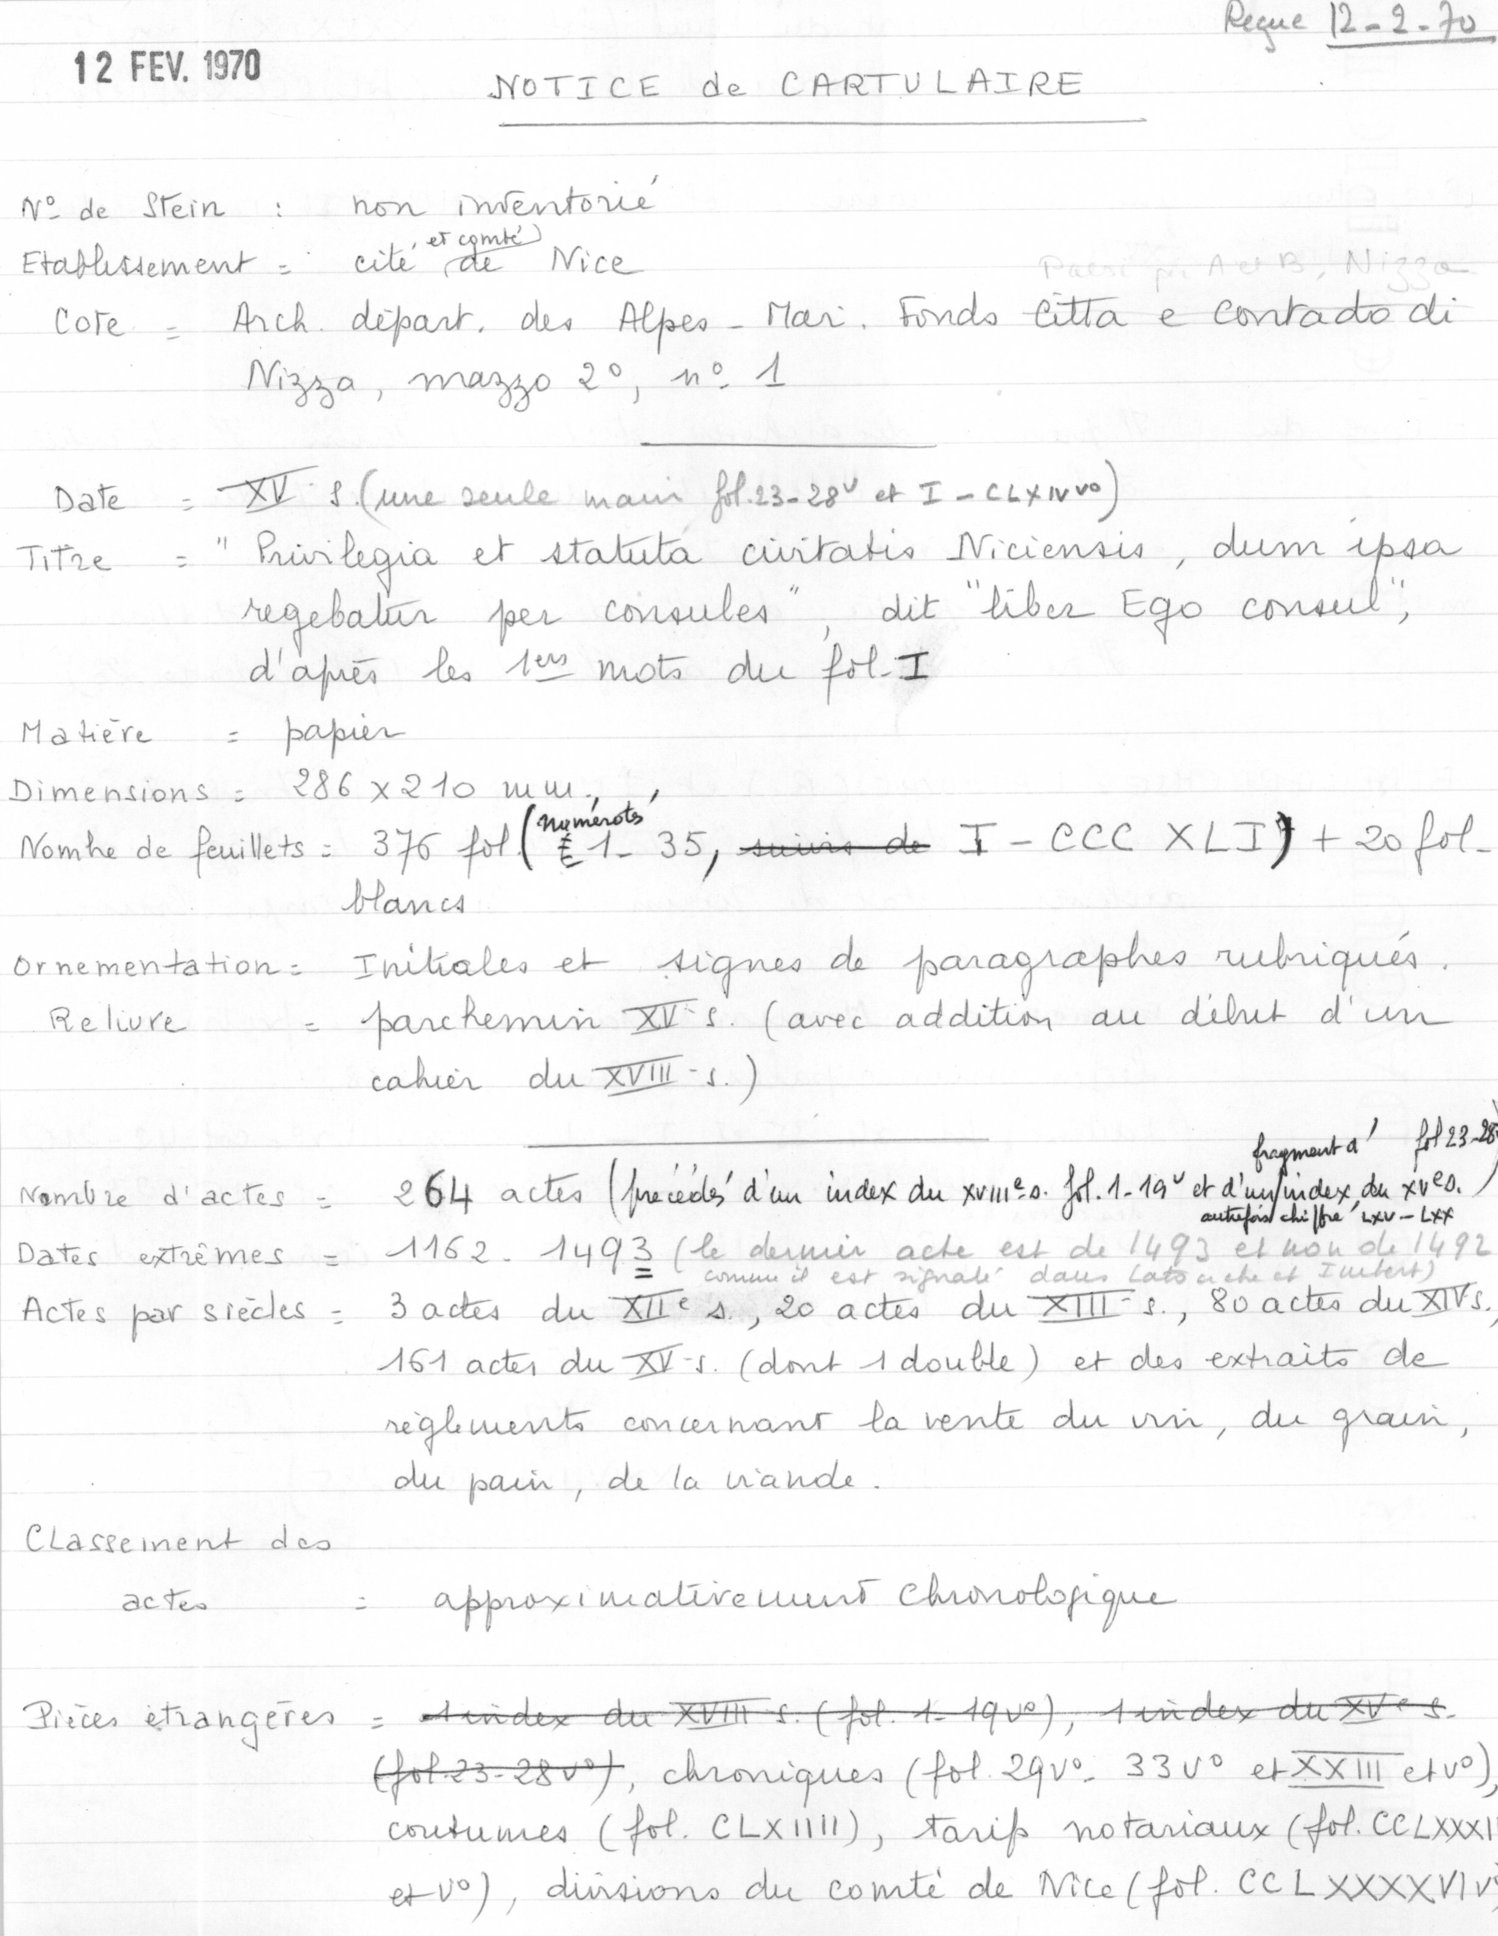 Reçue 12-2-70
12 FEV. 1970
NOTICE de CARTULAIRE
N° de Stein : non inventorié
et comté
Etablissement = cité de Nice
Paesi A et B, Nizza
Cote = Arch. départ. des Alpes-Mar. Fonds Citta e Contado di
Nizza, mazzo 2°, n° 1
Date = XV s. (une seule main fol. 23-28v et I-CLXIV v°)
Titre = "Privilegia et statuta civitatis Niciensis, dum ipsa
regebatur per consules", dit "liber Ego consul",
d'après les 1ers mots du fol. I
Matière = papier
Dimensions = 286 x 210 mm.
numérotés
Nombre de feuillets = 376 fol. (1-35, suivis de I-CCC XLI) + 20 fol.
blancs
Ornementation = Initiales et signes de paragraphes rubriqués.
Reliure = parchemin XV s. (avec addition au début d'un
cahier du XVIII s.)
fragment d' fol 23-28v
Nombre d'actes = 264 actes (précédés d'un index du XVIIIe s. fol. 1-19v et d'un index du XVe s.)
autrefois chiffré LXV-LXX
Dates extrêmes = 1162-1493 (le dernier acte est de 1493 et non de 1492
comme il est signalé dans Latouche et Imbert)
Actes par siècles = 3 actes du XIIe s., 20 actes du XIII s., 80 actes du XIV s.,
161 actes du XV s. (dont 1 double) et des extraits de
règlements concernant la vente du vin, du grain,
du pain, de la viande.
Classement des
actes = approximativement chronologique
Pièces étrangères = 1 index du XVIII s. (fol. 1-19 v°), 1 index du XVe s.
(fol. 23-28 v°), chroniques (fol. 29v°-33v° et XXIII et v°),
coutumes (fol. CLXIIII), tarifs notariaux (fol. CCLXXXII
et v°), divisions du comté de Nice (fol. CCLXXXXVI v°